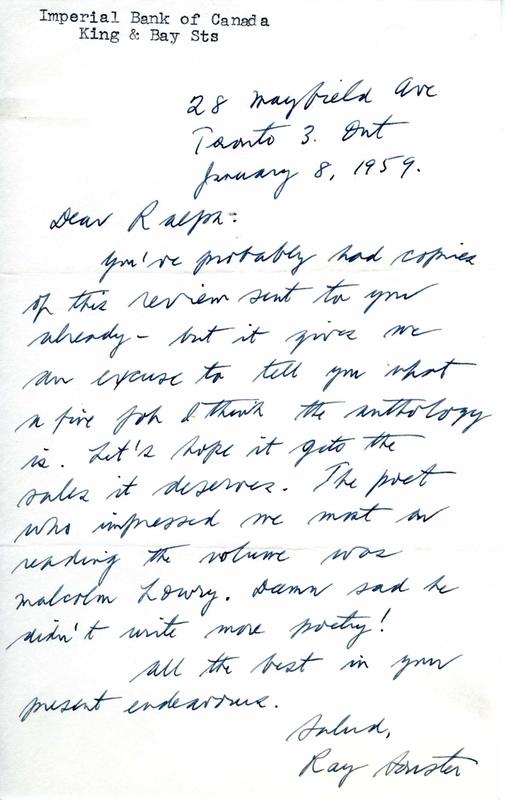 Imperial Bank of Canada
King & Bay Sts
28 Mayfield Ave
Toronto 3. Ont
January 8, 1959.
Dear Ralph:
You've probably had copies
of this review sent to you
already – but it gives me
an excuse to tell you what
a fine job I think the anthology
is. Let's hope it gets the
sales it deserves. The poet
who impressed me most on
reading the volume was
Malcolm Lowry. Damn sad he
didn't write more poetry!
All the best in your
present endeavours.
Salud,
Ray Souster